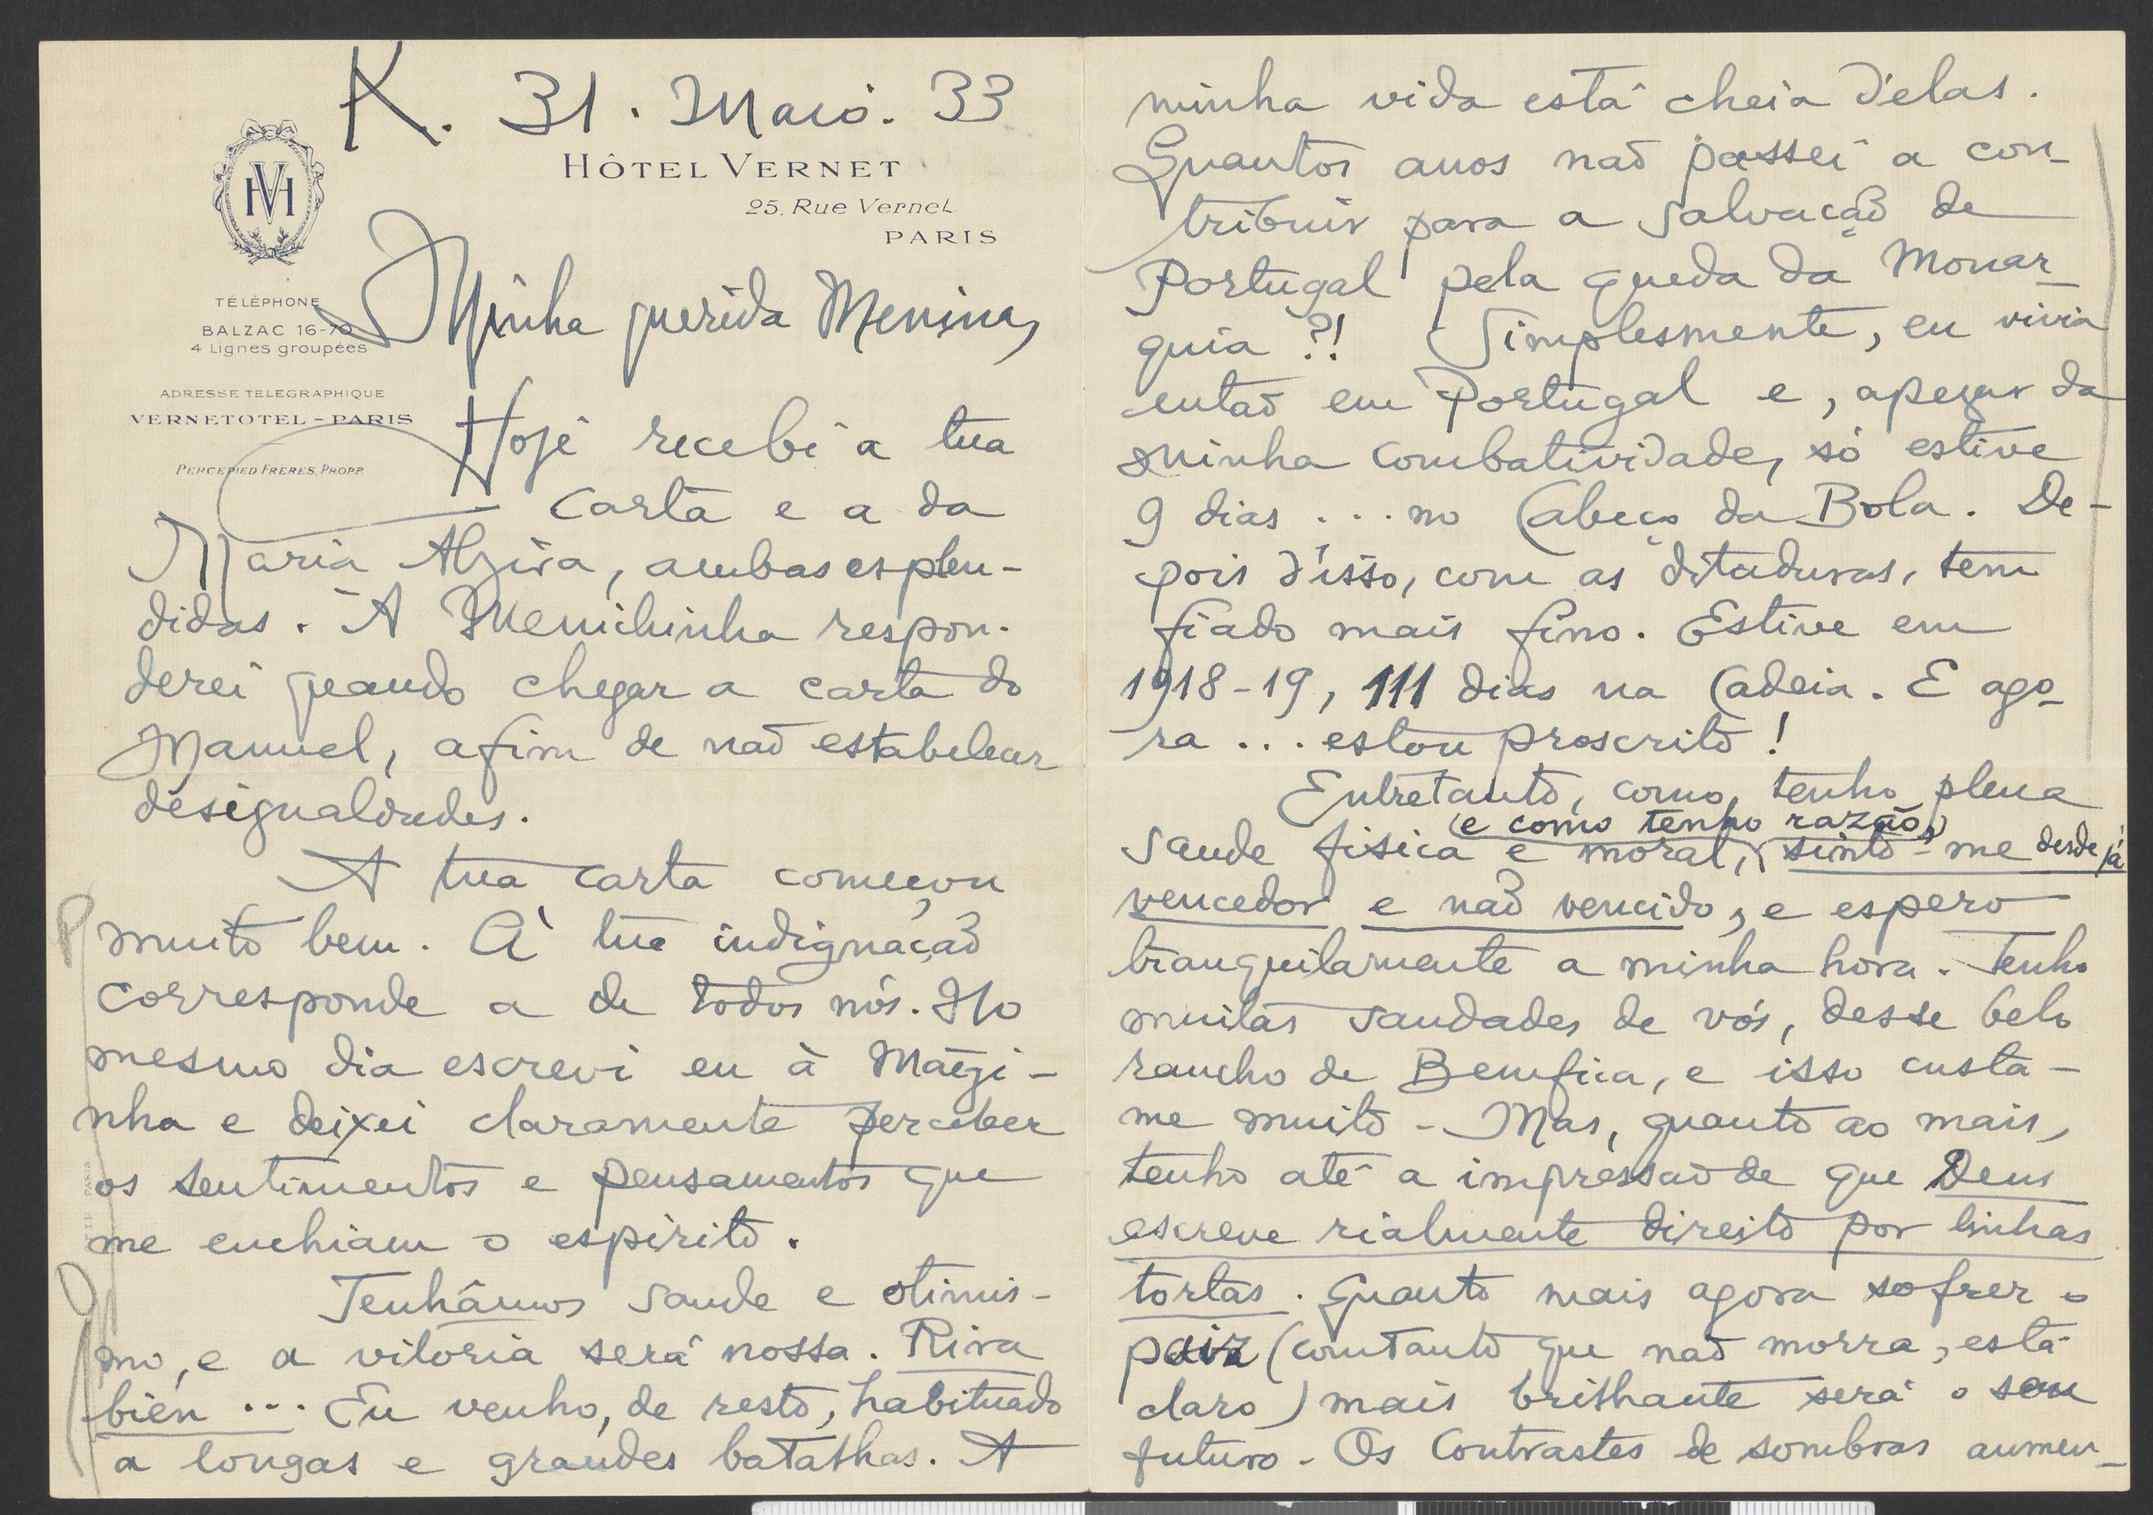 K. 31. Maio. 33
HÔTEL VERNET
25, Rue Vernet
PARIS
VH
TÉLÉPHONE
BALZAC 16-70
4 Lignes groupées
ADRESSE TELEGRAPHIQUE
VERNETOTEL - PARIS
PERCEPIED FRERES, PROPP.
Minha querida Menina,
Hoje recebi a tua
carta e a da
Maria Alzira, ambas esplen-
didas. A Menichinha respon-
derei quando chegar a carta do
Manuel, afim de não estabelecer
desigualdades.
A tua carta começou
muito bem. À tua indignação
corresponde a de todos nós. No
mesmo dia escrevi eu à Mãezi-
nha e deixei claramente perceber
os sentimentos e pensamentos que
me enchiam o espirito.
Tenhâmos saude e otimis-
mo, e a vitoria será nossa. Rira
bien ... Eu venho, de resto, habituado
a longas e grandes batalhas. A
minha vida está cheia d'elas.
Quantos anos não passei a con-
tribuir para a salvação de
Portugal pela queda da Monar-
quia ?! Simplesmente, eu vivia
então em Portugal e, apezar da
minha combatividade, só estive
9 dias ... no Cabeço da Bola. De-
pois d'isso, com as ditaduras, tem
fiado mais fino. Estive em
1918-19, 111 dias na Cadeia. E ago-
ra ... estou proscrito!
Entretanto, como tenho plena
(e como tenho razão)
saude fisica e moral, sinto-me desde já
vencedor e não vencido, e espero
tranquilamente a minha hora. Tenho
muitas saudades de vós, desse belo
rancho de Bemfica, e isso custa-
me muito - Mas, quanto ao mais,
tenho até a impressão de que Deus
escreve rialmente direito por linhas
tortas. Quanto mais agora sofrer o
paiz (comtanto que não morra, está
claro) mais brilhante será o seu
futuro - Os contrastes de sombras aumen-